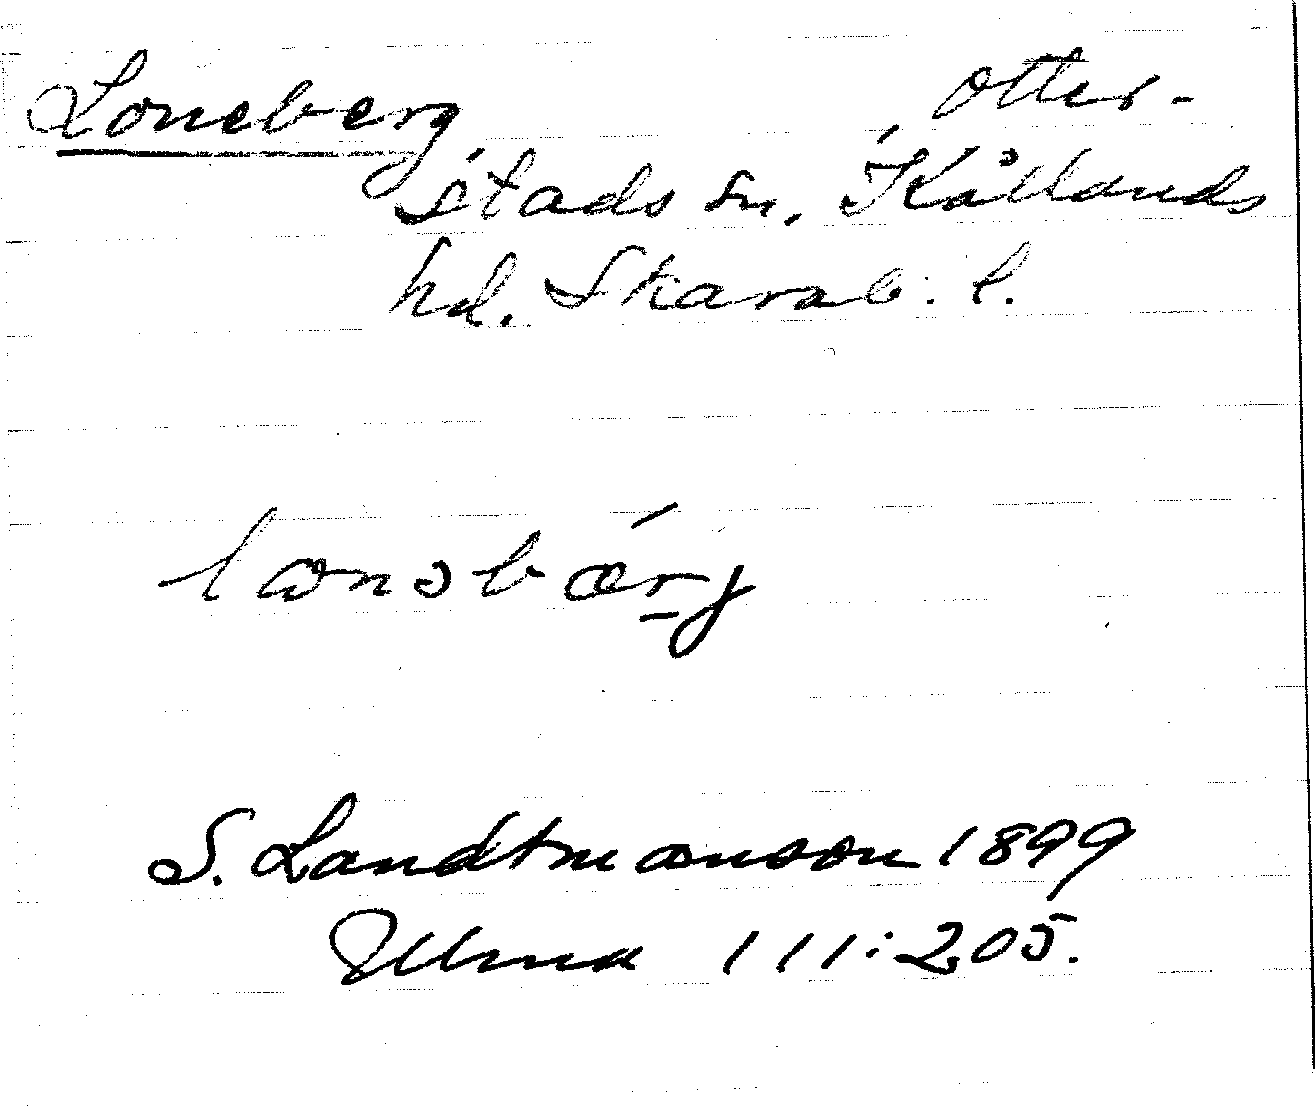 Loneberg Otter-
stads sn. Kållands
hd. Skarab. l.
lonəbǽrj
S. Landtmanson 1899
Ulma 111:205.